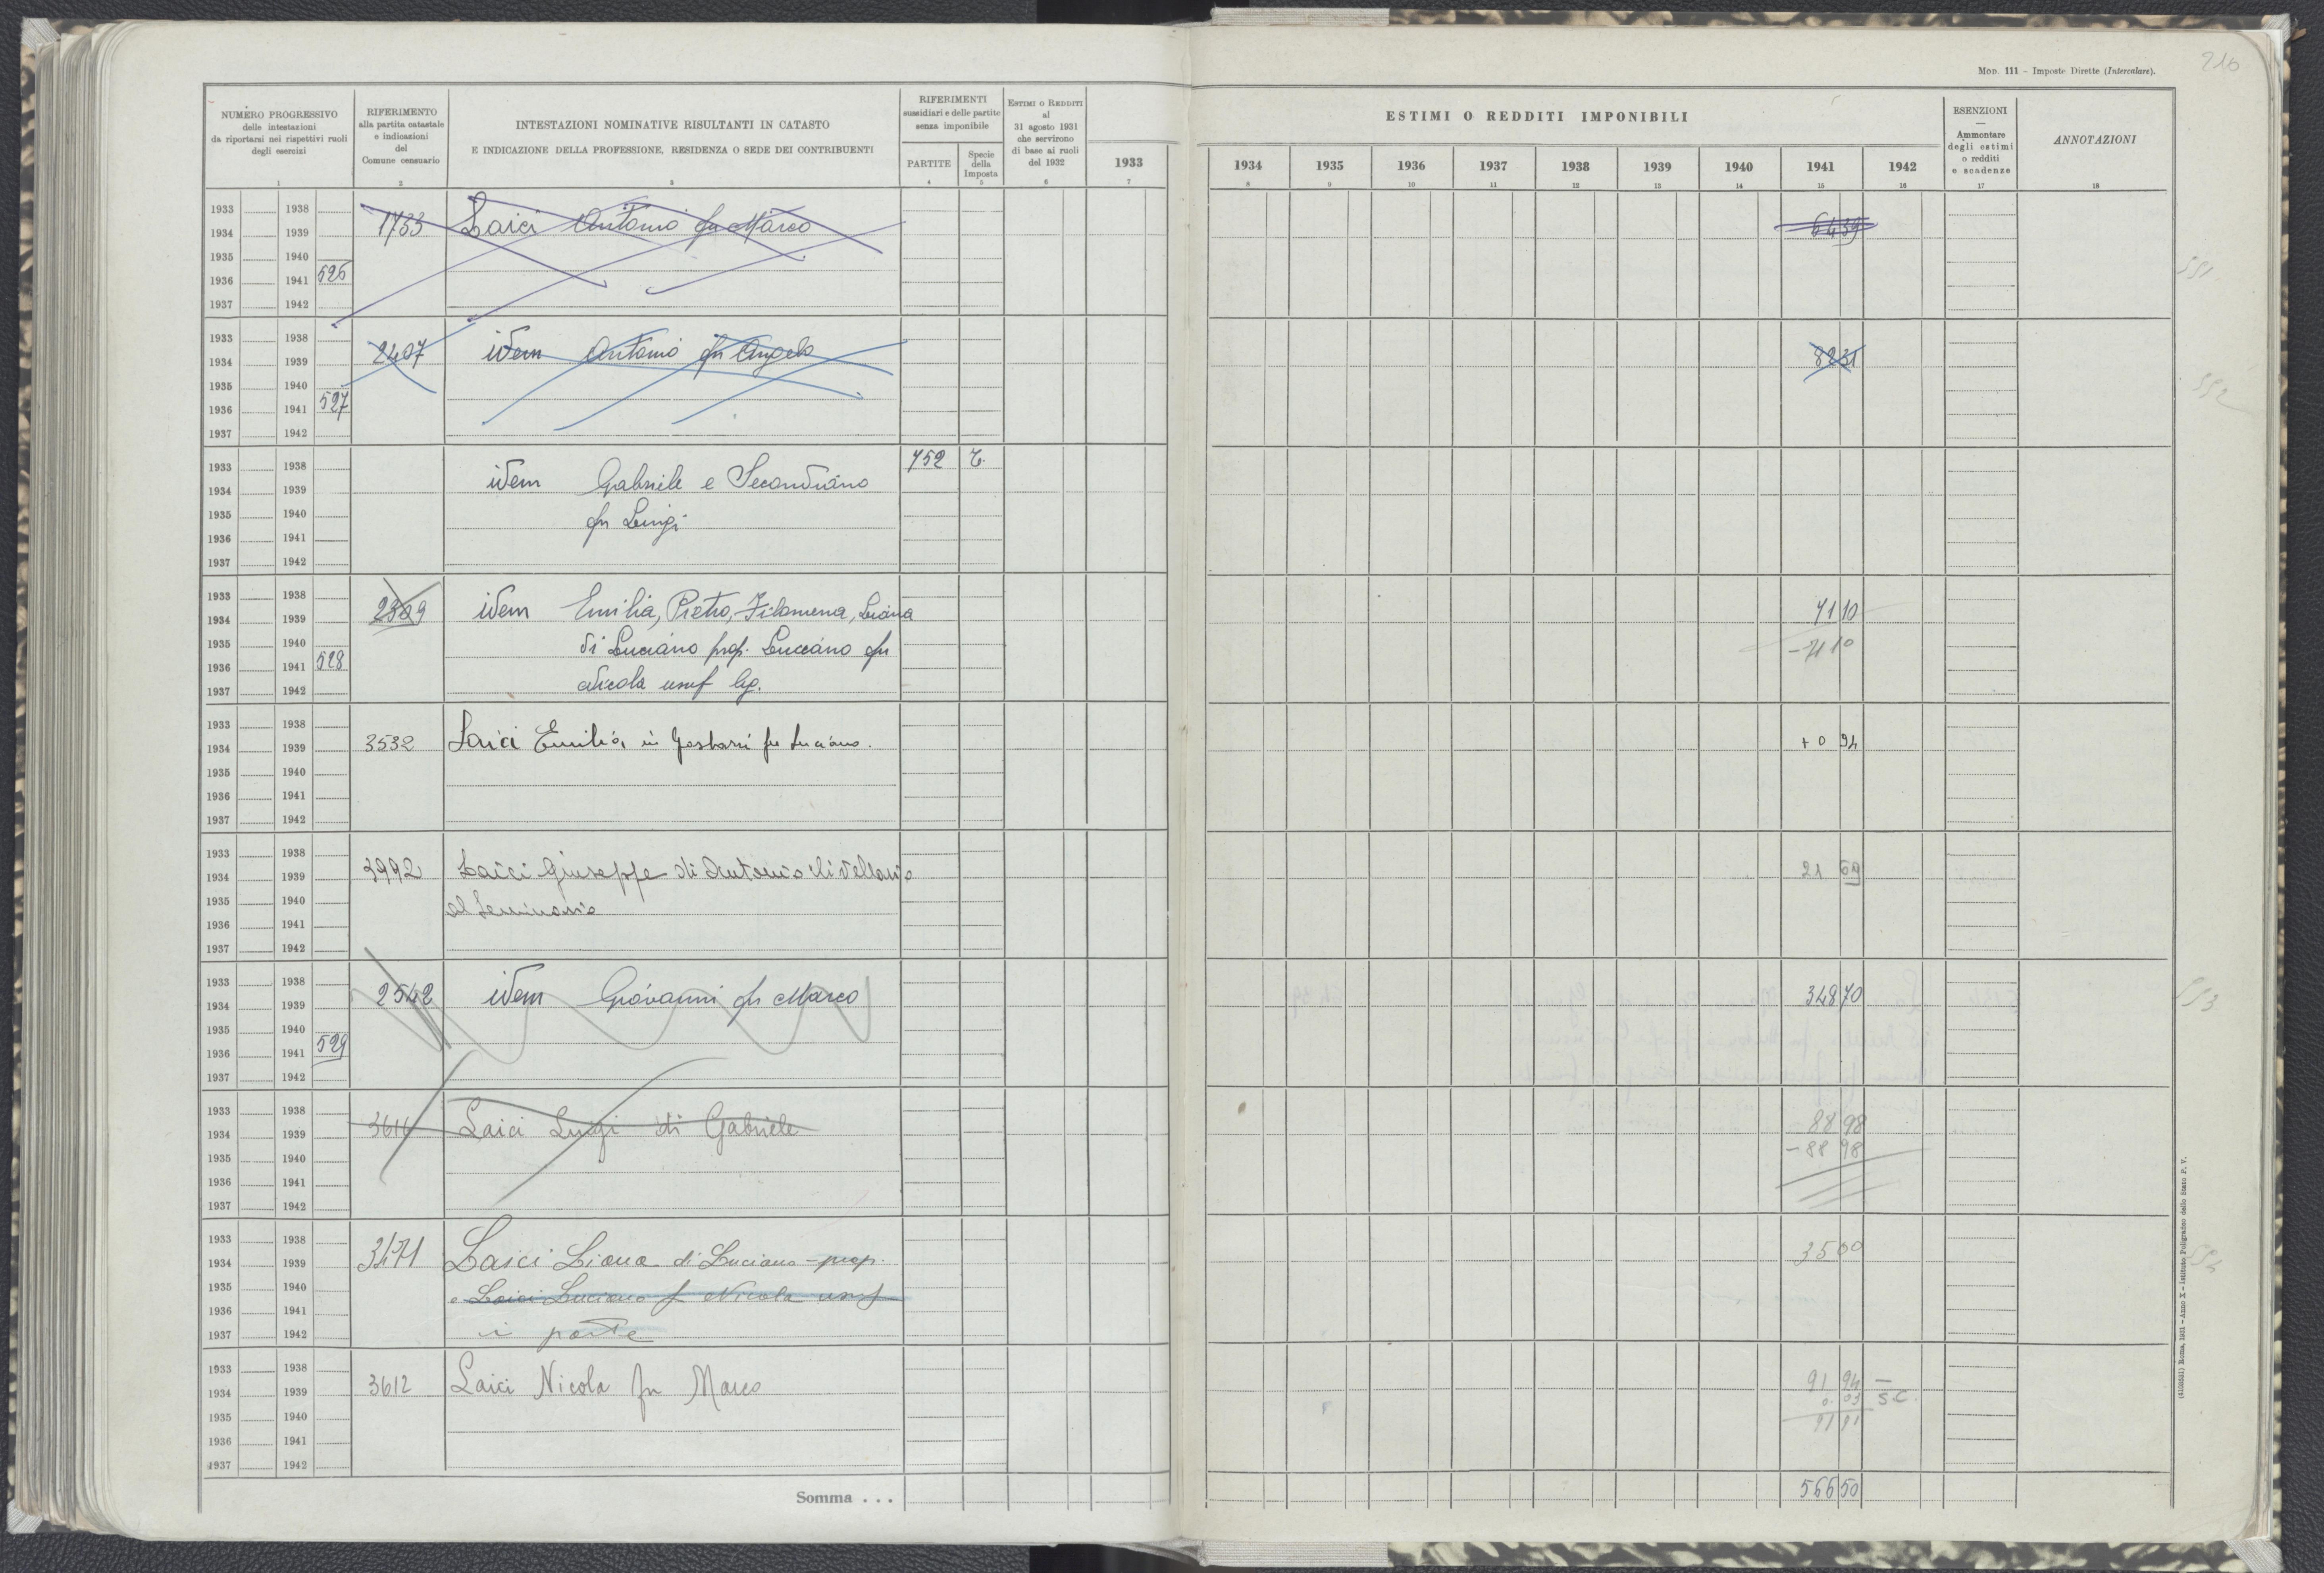 216
MOD. 111 – Imposte Dirette (Intercalare).
NUMERO PROGRESSIVO
delle intestazioni
da riportarsi nei rispettivi ruoli
degli esercizi
1
RIFERIMENTO
alla partita catastale
e indicazioni
del
Comune censuario
2
INTESTAZIONI NOMINATIVE RISULTANTI IN CATASTO
E INDICAZIONE DELLA PROFESSIONE, RESIDENZA O SEDE DEI CONTRIBUENTI
3
RIFERIMENTI
sussidiari e delle partite
senza imponibile
PARTITE
4
Specie
della
Imposta
5
ESTIMI O REDDITI
al
31 agosto 1931
che servirono
di base ai ruoli
del 1932
6
1933
7
ESTIMI O REDDITI IMPONIBILI
1934 1935 1936 1937 1938 1939 1940 1941 1942
8 9 10 11 12 13 14 15 16
ESENZIONI
—
Ammontare
degli estimi
o redditi
e scadenze
17
ANNOTAZIONI
18
1933 1938
1934 1939 1733 Laici Antonio fu Marco 64 39
1935 1940
1936 1941 526 551
1937 1942
1933 1938
1934 1939 2407 idem Antonio fu Angelo 82 31
1935 1940
1936 1941 527 552
1937 1942
1933 1938 752 T.
1934 1939 idem Gabriele e Secondiano
1935 1940 fu Luigi
1936 1941
1937 1942
1933 1938
1934 1939 2309 idem Emilia, Pietro, Filomena, Liana 71 10
1935 1940 di Luciano prop. Luciano fu -71 10
1936 1941 528
1937 1942 Nicola usuf
1933 1938
1934 1939 3532 Laici Emilia in Gasbarri fu Luciano. + 0 94
1935 1940
1936 1941
1937 1942
1933 1938
1934 1939 3992 Laici Giuseppe di Antonio livellario 21 69
1935 1940 al Seminario
1936 1941
1937 1942
1933 1938
1934 1939 2542 idem Giovanni fu Marco 348 70 553
1935 1940
1936 1941 529
1937 1942
1933 1938
1934 1939 3616 Laici Luigi di Gabriele 88 98
1935 1940 - 88 98
1936 1941
1937 1942
1933 1938
1934 1939 3471 Laici Liana di Luciano - prop. 35 00 554
1935 1940
1936 1941 e Laici Luciano f Nicola usuf
1937 1942 i parte
1933 1938
1934 1939 3612 Laici Nicola fu Marco 91 94 —
0. 03 S C.
1935 1940 91 91
1936 1941
1937 1942
Somma . . . 566 50
(4100551) Roma, 1931 – Anno X – Istituto Poligrafico dello Stato P. V.